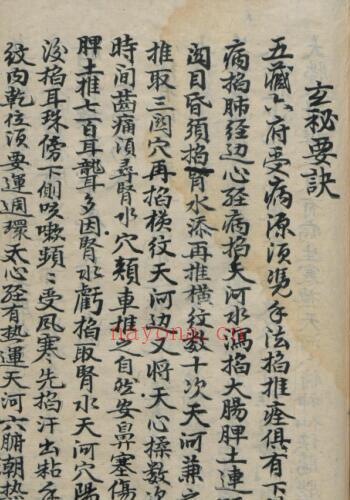 玄秘要訣
五藏六府受病源須凴手法掐推痊俱有下
病掐肺經边心經病掐天河水瀉掐大腸脾土連
目昏須掐腎水添再推橫紋数十次天河兼
推取三関穴再掐橫紋天河边又將天心搡数次
時间齒痛須尋腎水穴頰車推之自然安鼻塞傷
脾土推七百耳聾多因腎水虧掐取腎水天河穴陽
後掐耳珠傍下側咳嗽頻〻受風寒先掐汗出粘手
紋内乾位須要運週環心經有热運天河六腑朝热
nayona.cn